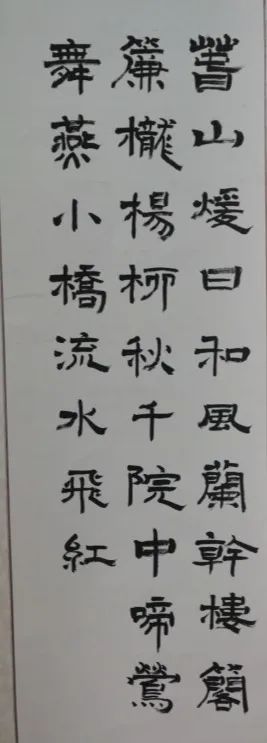 萅山煖日和風蘭幹樓閣
簾櫳楊柳秋千院中啼鶯
舞燕小橋流水飛紅